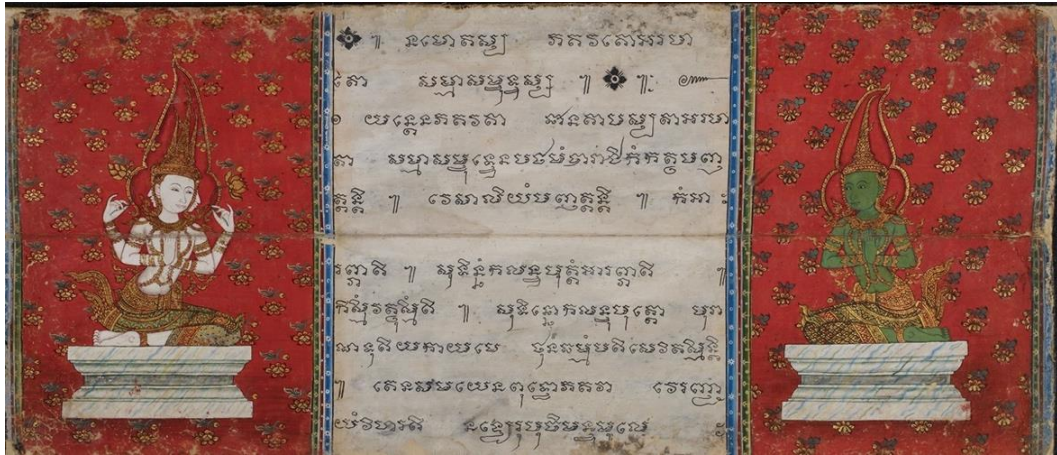 ៕ នមោតស្ស ភគវតោអរហ
តោ សម្មាសម្ពុទ្ធស្ស ៕ ៕
១ យន្តេនភគវតា ជានតាបស្សតាអរហ
តា សម្មាសម្ពុទ្ធេនបឋមំបារាជិកំកត្ថបញ្
ត្តន្តិ ៕ វេសាលិយំបញ្ញត្តន្តិ ៕ កំអា
រព្ភាតិ ៕ សុទិន្នំកលន្ទបុត្តំអារព្ភាតិ ៕
កិស្មិំវត្ថុស្មិំតិ ៕ សុទិន្នោកលន្ទបុត្តោ បុរា
ណទុតិយកាយមេ ថុនំធម្មំបតិសេវិតស្មិន្តិ
៕ តេនសមយេនពុទ្ធោភគវា វេរញ្ជា
យំវិហរតិ នឡេរុបុចិមន្ទមូលេ